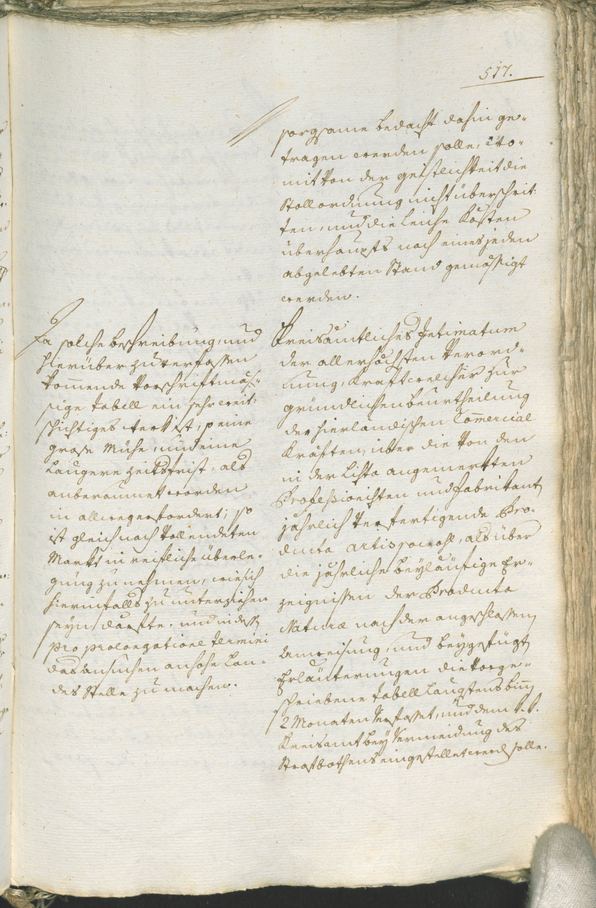 517.
sorgsame bedacht dahin ge-
tragen werden solle, wo-
mit von der geistlichkeit die
Stollordnung nicht überschrit-
ten, und die Leiche Kosten
überhaupts nach eines jeden
abgelebten Stand gemäßigt
werden.
Da solche beschreibung, und
hierüber zu verfassen
kommende Vorschriftmäs-
sige tabell ein sehr weit-
schichtiges werk ist, so eine
große Mühe, und eine
Längere zeitsfrist, als
anberaumet worden
in allweeg erfordert; so
ist gleich nach vollendeten
Markt in reifliche überle-
gung zu nehmen, wie sich
hierinfalls zu unterziehen
seyn dürfte, und indeß
pro prolongatione termini
das ansuchen an hohe Lan-
des Stelle zu machen.
Kreisamtliches Intimatum
der allerhöchsten Verord-
nung, Kraft welcher zur
gründlichen beurtheilung
der hierländischen Commercial
Kräften, über die von den
in der Lista angemerkten
Professionisten und fabricant
jährlich verfertigende Pro-
ducta als über
die jährliche beyläufige Er-
zeignissen der Producta
Naturæ nach der angeschlossen
anweisung, und beygefügt
Erläuterungen die vorge-
schriebene tabell Längstens bin
2 Monaten verfasset, und dem k. k.
Kreisamt bey Vermeidung des
Strafbothens eingestellet werd solle.